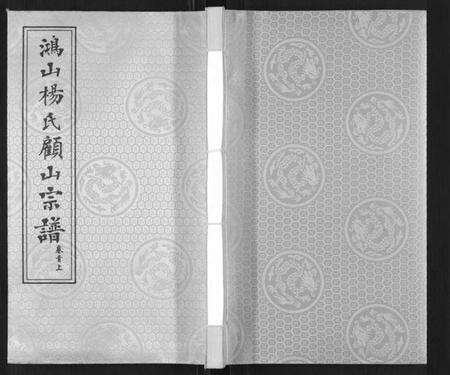 鴻山楊氏顧山宗譜
卷首上